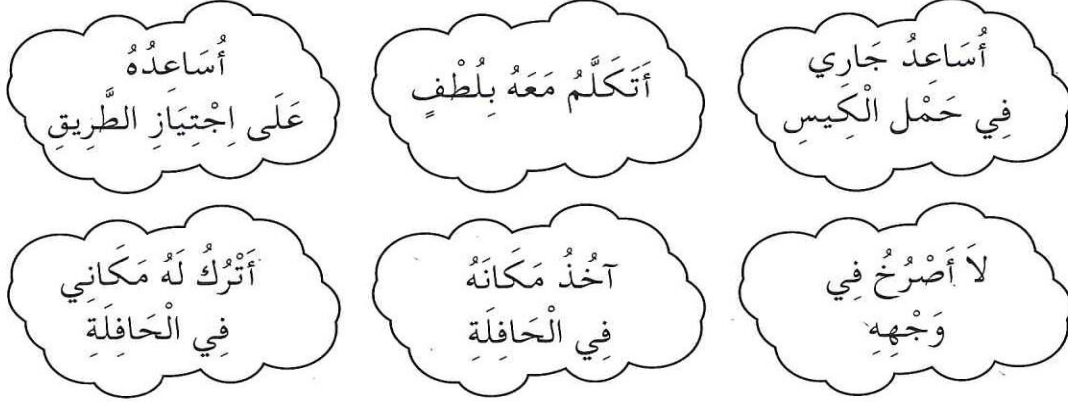 أُسَاعِدُ جَارِي
فِي حَمْل الْكِيسِ
أَتَكَلَّمُ مَعَهُ بِلُطْفٍ
أُسَاعِدُهُ
عَلَى اِجْتِيَازِ الطَّرِيقِ
لاَ أَصْرُخُ فِي
وَجْهِهِ
آخُذُ مَكَانَهُ
فِي الْحَافِلَةِ
أَتْرُكُ لَهُ مَكَانِي
فِي الْحَافِلَةِ